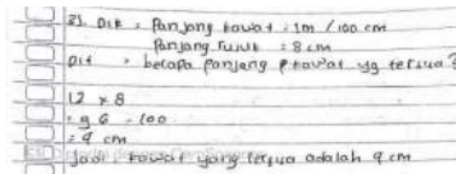 21. Dik : Panjang kawat : 1m / 100 cm
Panjang rusuk : 8 cm
Dit : berapa panjang kawat yg tersisa?
12 x 8
= 96 - 100
= 4 cm
Jadi, kawat yang tersisa adalah 4 cm